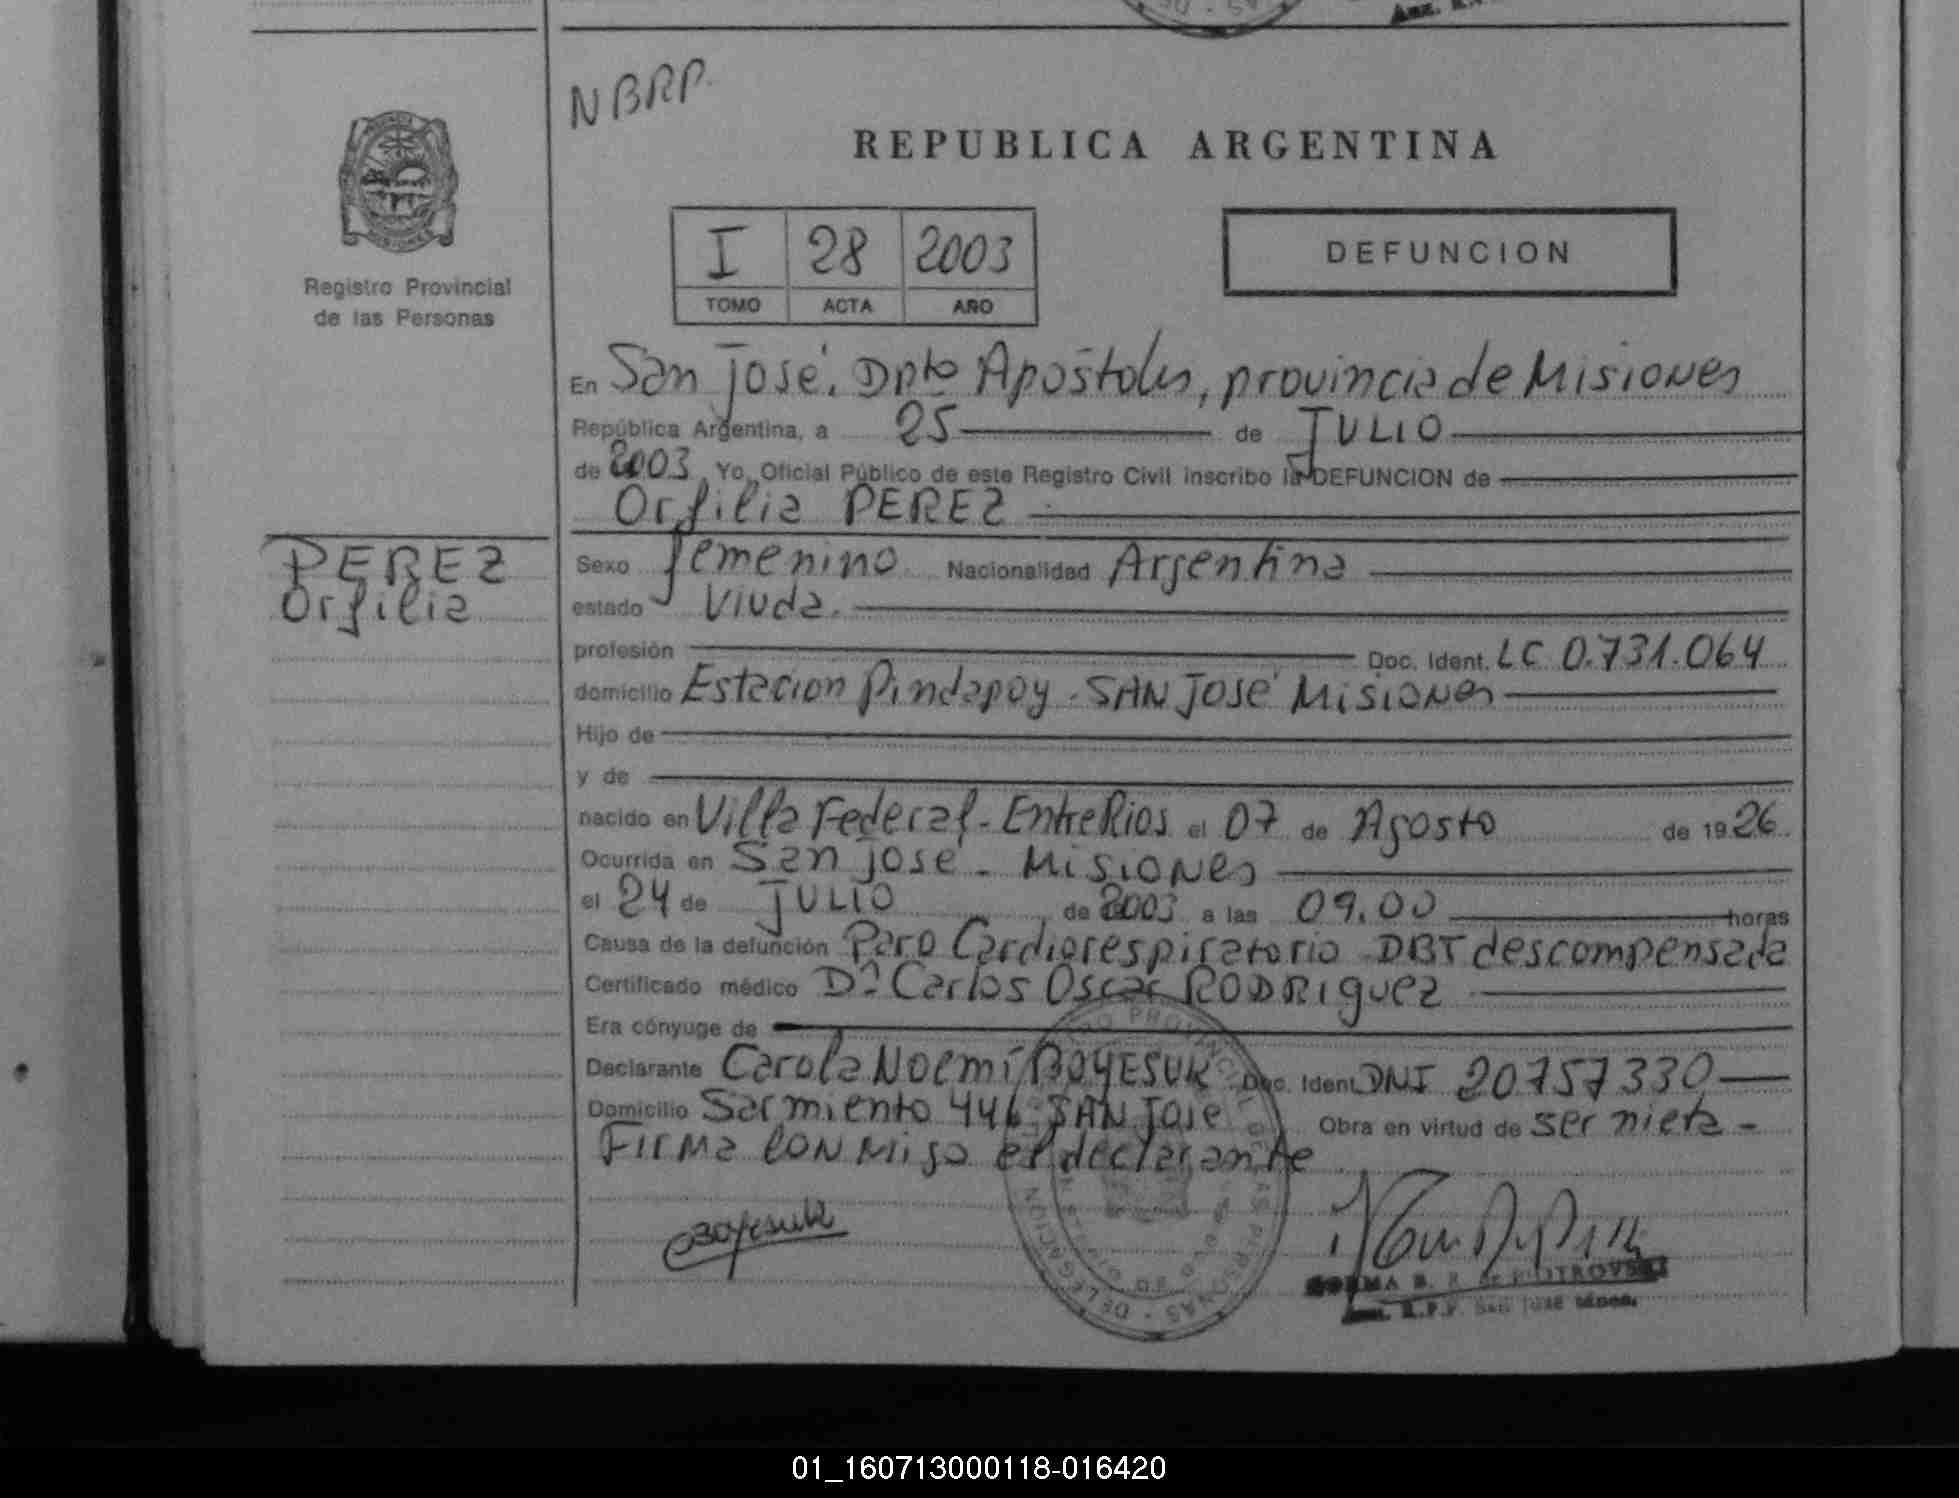 NBRP.
REPUBLICA ARGENTINA
I 28 2003
TOMO ACTA AÑO
DEFUNCION
Registro Provincial
de las Personas
En San José. Dpto Apóstoles, provincia de Misiones
República Argentina, a 25 de JULIO
de 2003 Yo, Oficial Público de este Registro Civil inscribo la DEFUNCION de
Orfilia PEREZ
PEREZ
Orfilia
Sexo femenino Nacionalidad Argentina
estado Viuda.
profesión Doc. Ident. LC 0.731.064
domicilio Estacion Pindapoy - SAN José Misiones
Hijo de
y de
nacido en Villa Federal - Entre Rios el 07 de Agosto de 1926.
Ocurrida en San José - Misiones
el 24 de JULIO de 2003 a las 09.00 horas
Causa de la defunción Paro Cardiorespiratorio - DBT descompensada
Certificado médico Dr. Carlos Oscar RODRIguez
Era cónyuge de
Declarante Carola Noemí BOYESUK Doc. Ident. DNI 20757330
Domicilio Sarmiento 446 - SAN José Obra en virtud de ser nieta -
Firma conmigo el declarante
Boyesuk
NORMA B. R. de PIOTROVSKI
R.P.P. San José
PROVINCIAL DE LAS PERSONAS - DELEGACION
01_160713000118-016420